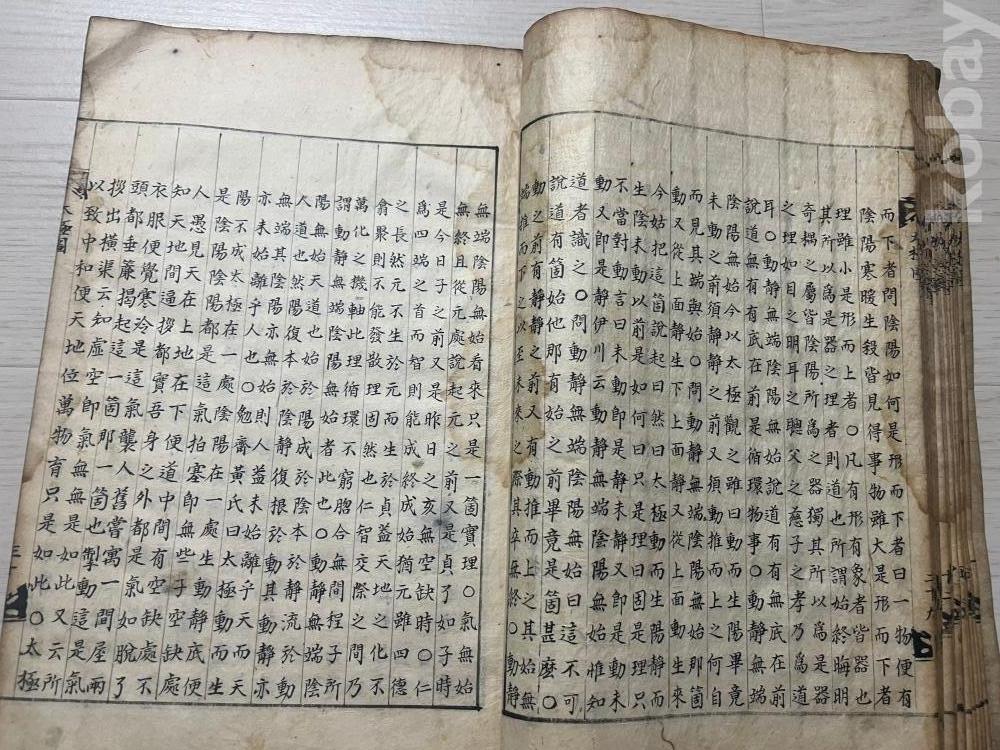 而下者問陰陽如何是形而下者曰一物便有
陰陽寒暖生殺皆見得事物雖大是形而下者
理雖小是形而上者〇凡有形有象者皆器也
其所以爲是器之理者則道也所謂始終晦明
奇耦之屬皆陰陽所爲之器獨其所以爲是器
之理如目之明耳之聰父之慈子之孝乃爲道
耳〇動靜無端陰陽無始說道有有無底在前
說道無有有底在前是循環物事〇動靜無端
陰陽無始今以太極觀之雖曰動而生陽畢竟
未動之前須靜靜之前又須動推而上之何自
而見其端與始〇動靜無端陰陽無始那箇
動又從上面靜生下上面靜又從上面動生來
今姑把這箇說起曰然曰太極動而生陽靜而
生陰未動以前是如何曰只是理曰固是理只
不當對動言曰未動即是靜未靜又即是動未
動又即是靜伊川云動靜無端陰陽無始惟知
道者識之〇問動靜無端陰陽無始曰這不可
說道有箇始他那有始之前畢竟是箇甚麼〇
動之前有靜靜之前又有動推而上之其始無
端推而下之以至未來之際其卒無終〇動靜
無端陰陽無始看來只是一箇實理〇氣無始
無終且從元處說起元之前又是貞了如子時
是今日子之前又是昨日之亥無空缺時〇仁
爲四端之首而智則能成終成始猶元雖四德
之長然元不生於元而生於貞益天地之化不
翕聚則不能發散理固然也仁智交際之間乃
萬化之機軸此理循環不窮脗合無間程子所
謂動靜無端陰陽無始者此也〇動靜無端陰
陽無始天道也始於陽成於陰本於靜流於動
人道也然陽復本於陰靜復根於動其動靜亦
無端其陰陽亦無始則人益未始離乎天而天
亦未始離乎人也〇勉齋黃氏曰太極動而生
陽不成太極在一處陰陽在一處生動靜底便
是陰陽陰陽都是這氣拍塞即無些子空缺處
人愚見天在上地在下便道中間有空缺處不
知天地間逼拶都實吾身之外都是氣如脫了
衣服便覺寒冷是這氣襲人舊嘗寓一間屋兩
頭都垂簾揭起這一箇那一箇也掣動這是氣
拶出橫渠云知虛空即氣無無是如此又云所
以致中和便天地位萬物育只是如此〇太極
太極圖
kobay